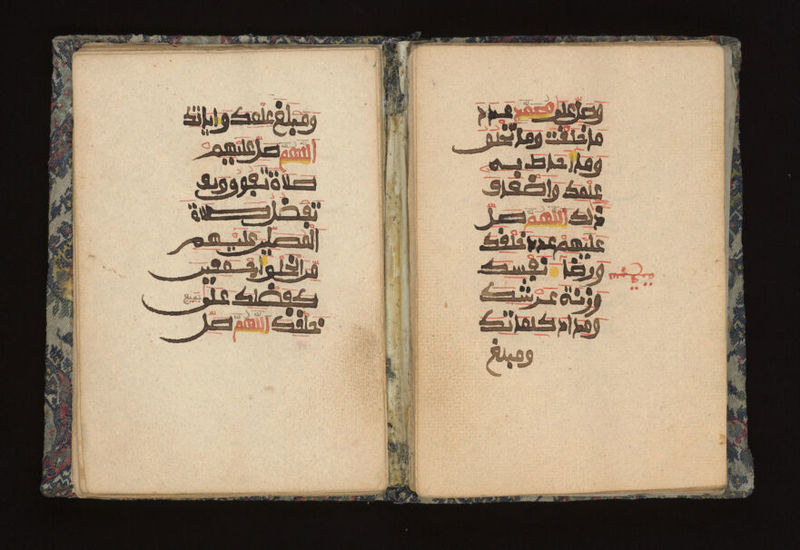 وصل على محمد عدد
ما خلقت وما تخلق
وما احاط به
علمك واضعاف
ذلك اللهم صل
عليهم عدد خلقك
ورضا نفسك
وزنة عرشك
ومداد كلماتك
ومبلغ
ومبلغ علمك واياتك
اللهم صل عليهم
صلاة تفوق
تفضل صلاة
المصلين عليهم
من الخلق اجمعين
كفضلك على جميع
خلقك اللهم صل